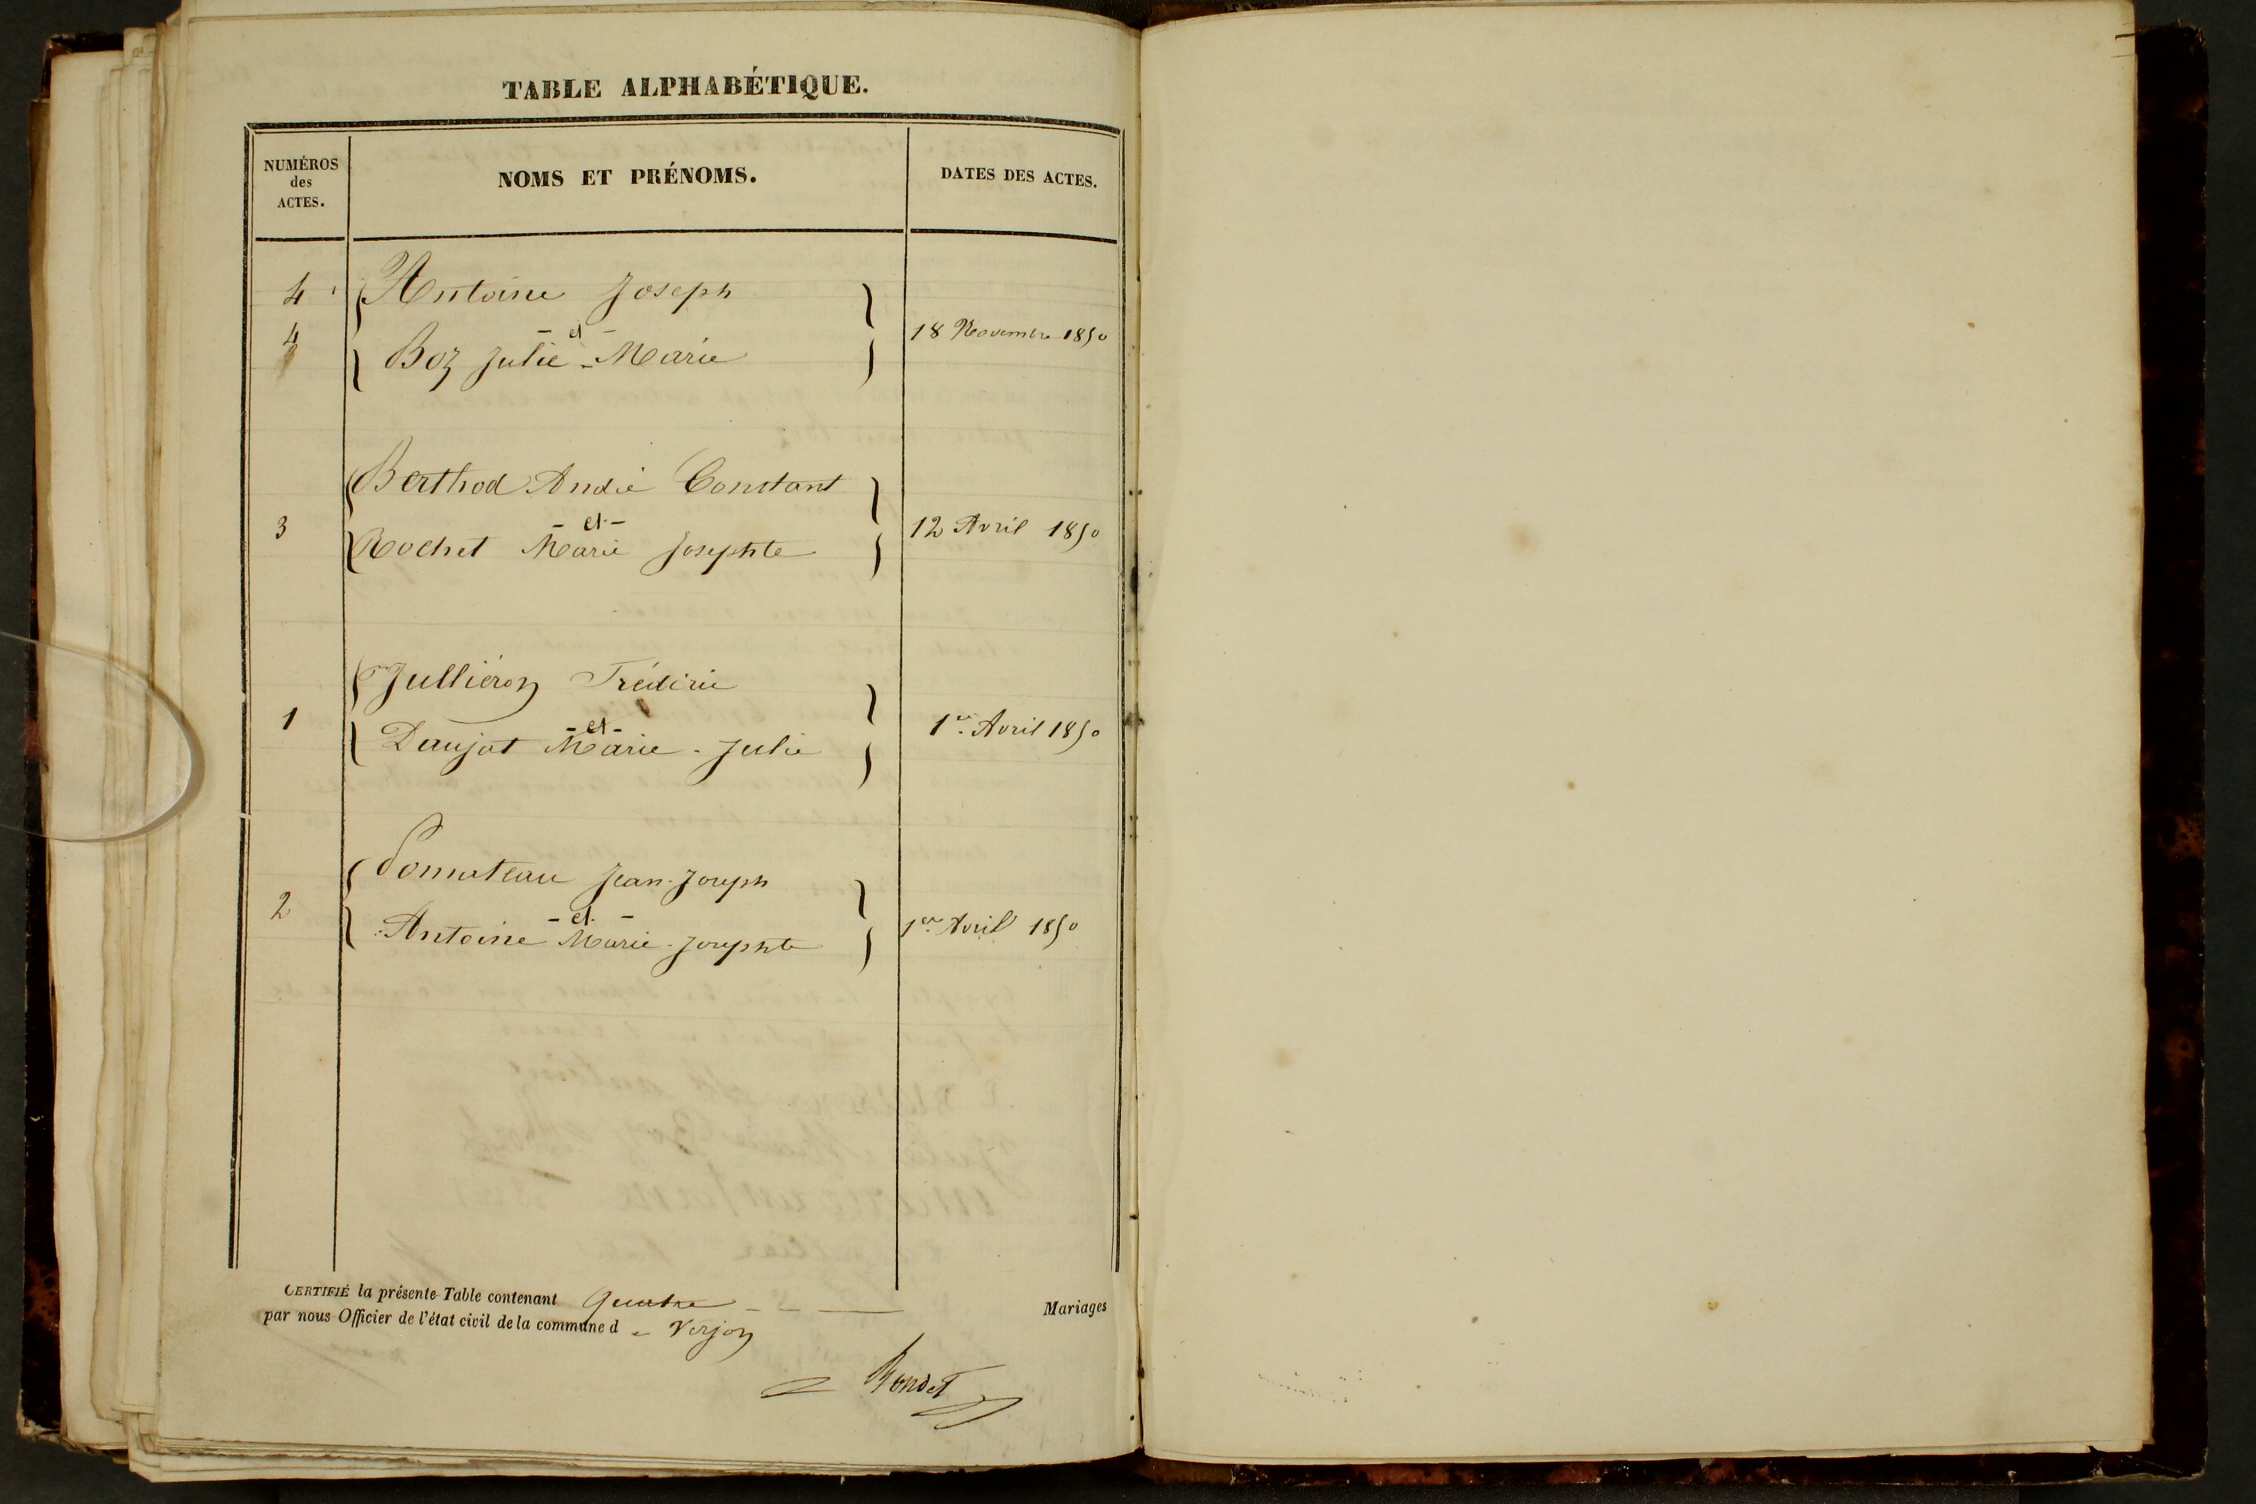 TABLE ALPHABÉTIQUE.
NUMÉROS
des
ACTES.
NOMS ET PRÉNOMS.
DATES DES ACTES.
4
Antoine Joseph
4
- et -
18 Novembre 1850
Boz Julie - Marie
Berthod André Constant
3
- et -
12 Avril 1850
Rochet Marie Josephte
Julliéron Frédéric
1
- et -
1er Avril 1850
Daujat Marie - Julie
Ponmateau Jean-Joseph
2
- et -
1er Avril 1850
Antoine Marie-Josephte
CERTIFIÉ la présente Table contenant Quatre Mariages
par nous Officier de l'état civil de la commune de Verjon
Rondet